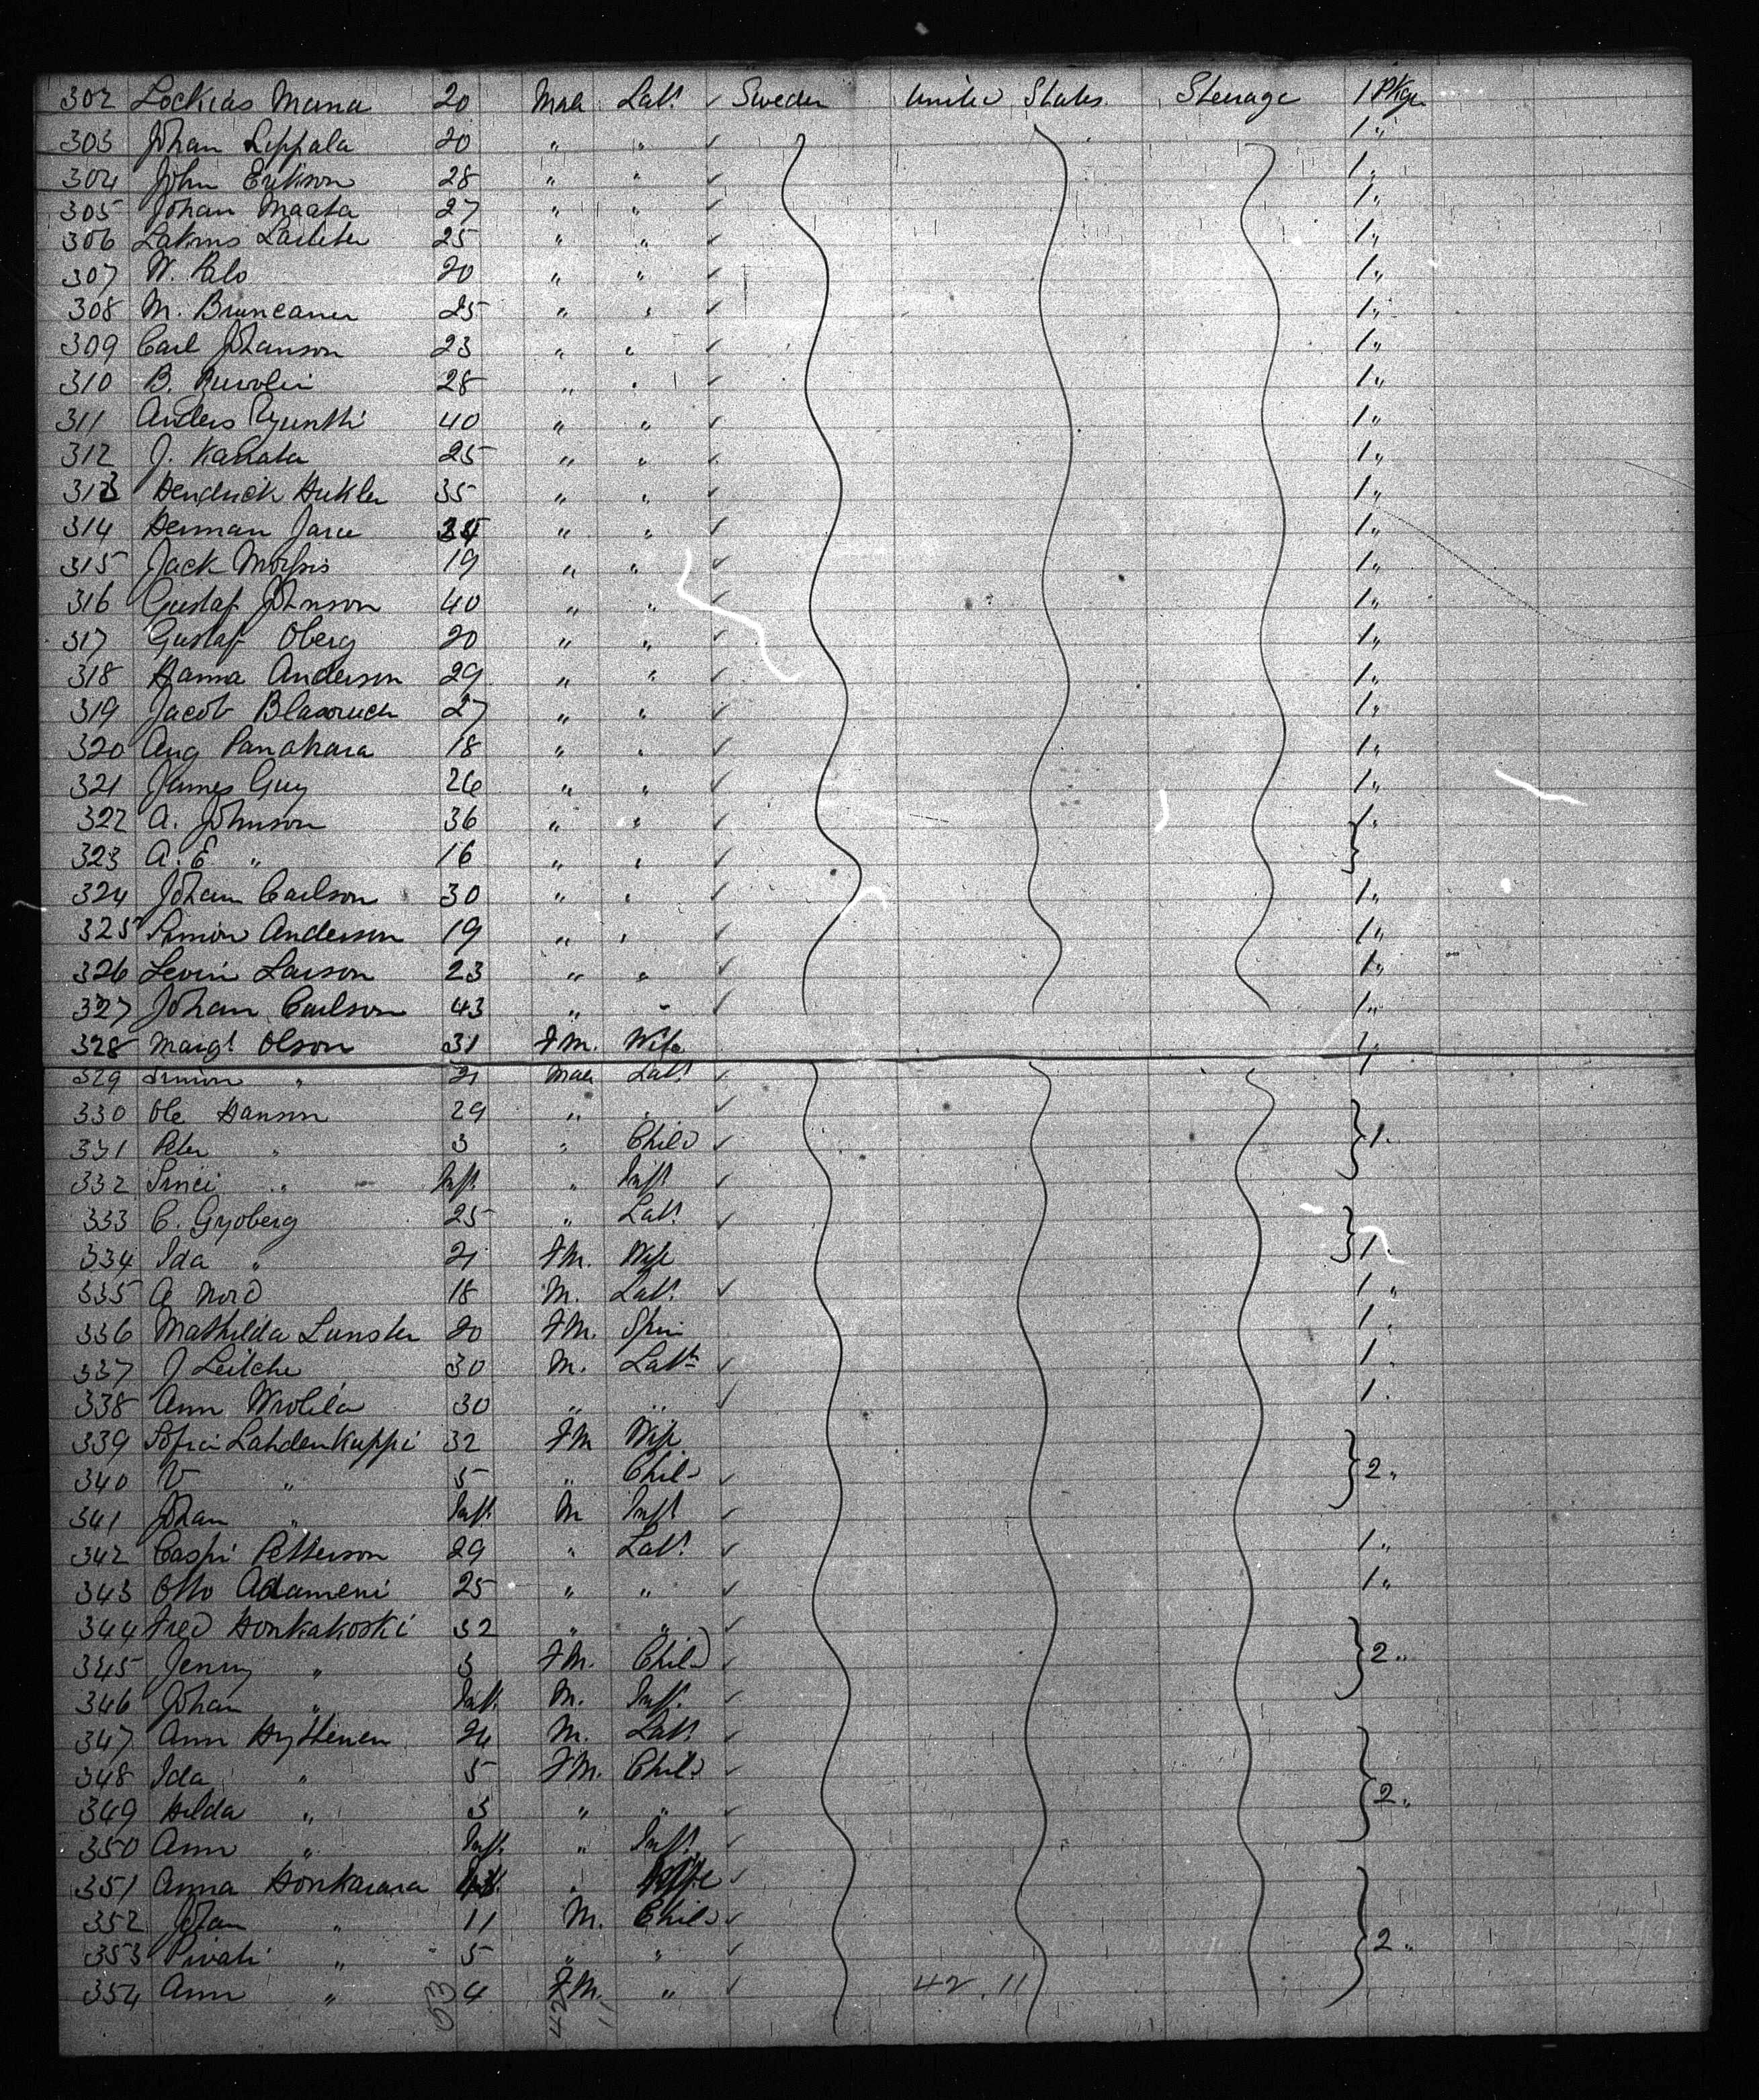 302 Lockias Mana 20 Male Labr ✓ Sweden United States Steerage 1 Pkge
303 Johan Lippala 20 " " ✓ 1 "
304 John Erikson 28 " " ✓ 1 "
305 Johan Maata 27 " " ✓ 1 "
306 25 " " ✓ 1 "
307 W. Palo 20 " " ✓ 1 "
308 M. 25 " " ✓ 1 "
309 Carl Johanson 23 " " ✓ 1 "
310 B. 28 " " ✓ 1 "
311 Anders 40 " " ✓ 1 "
312 J. 25 " " ✓ 1 "
313 Hendrick 35 " " ✓ 1 "
314 Herman " " ✓ 1 "
315 Jack 19 " " ✓ 1 "
316 Gustaf Johnson 40 " " ✓ 1 "
317 Gustaf Oberg 20 " " ✓ 1 "
318 Hanna Anderson 29 " " ✓ 1 "
319 Jacob 27 " " ✓ 1 "
320 Aug Panahara 18 " " ✓ 1 "
321 James Guy 26 " " ✓ 1 "
322 A. Johnson 36 " " ✓ 1 "
323 A. E. " 16 " " ✓
324 Johan Carlson 30 " " ✓ 1 "
325 Simon Anderson 19 " " ✓ 1 "
326 Levin Larson 23 " " ✓ 1 "
327 Johan Carlson 43 " " ✓ 1 "
328 Margt Olson 31 FM. Wife 1 "
329 Simon " 21 Male Labr ✓ 1
330 Ole Hanson 29 " " ✓
331 Peter " 3 " Child ✓ 1 "
332 " Inft. " Inft ✓
333 C. Gryoberg 25 " Labr ✓
334 Ida " 21 FM. Wife 1 "
335 A Nord 18 M. Labr ✓ 1 "
336 Mathilda Lunster 20 FM. Spin 1 "
337 J Leitche 30 M. Labr ✓ 1 "
338 Ann 30 " " ✓ 1 "
339 Sofia Lahdenkuppi 32 FM Wife
340 V " 5 " Child ✓ 2 "
341 Johan " Inft. M Inft ✓
342 Caspi Petterson 29 " Labr ✓ 1 "
343 Otto Adameni 25 " " ✓ 1 "
344 Fred Honkakoski 32 " " ✓
345 Jenny " 3 FM. Child ✓ 2 "
346 Johan " Inft. M. Inft. ✓
347 Ann Hyttenen 24 M. Labr ✓
348 Ida " 5 FM. Child ✓
349 Hilda " 3 " " ✓ 2 "
350 Ann " Inft. " Inft. ✓
351 Anna Honkarara " Wife ✓
352 Johan " 11 M. Child ✓
353 " 5 " " ✓ 2 "
354 Ann " 4 FM. " ✓ 42. 11
53 42 11